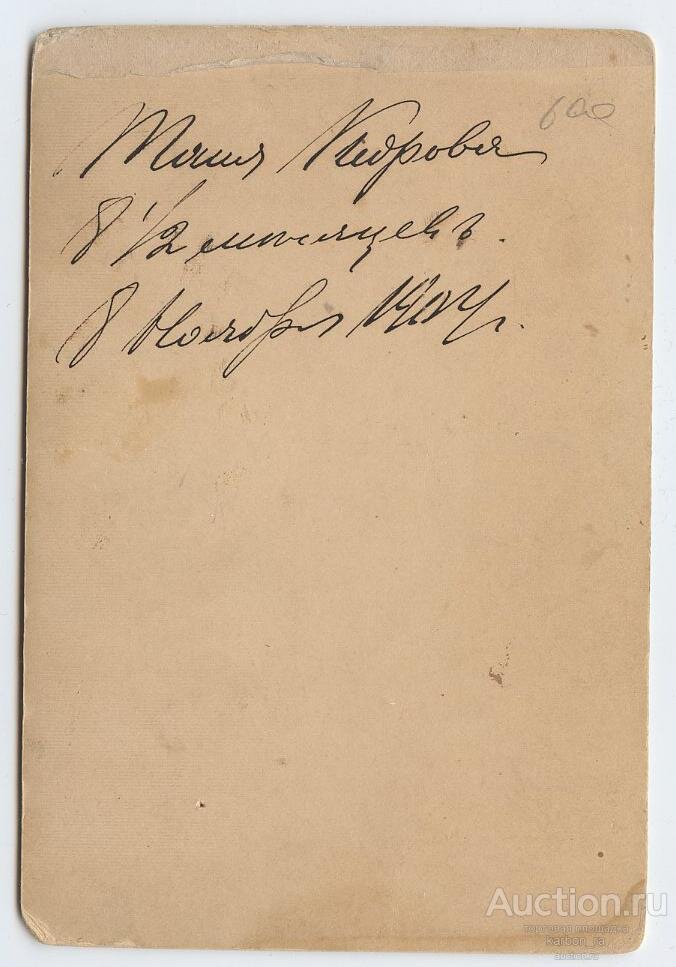 600
Таня Кедрова
8 1/2 месяцевъ.
8 Ноября 1904 г.
Auction.ru
торговая площадка
karbon_ra
auction.ru